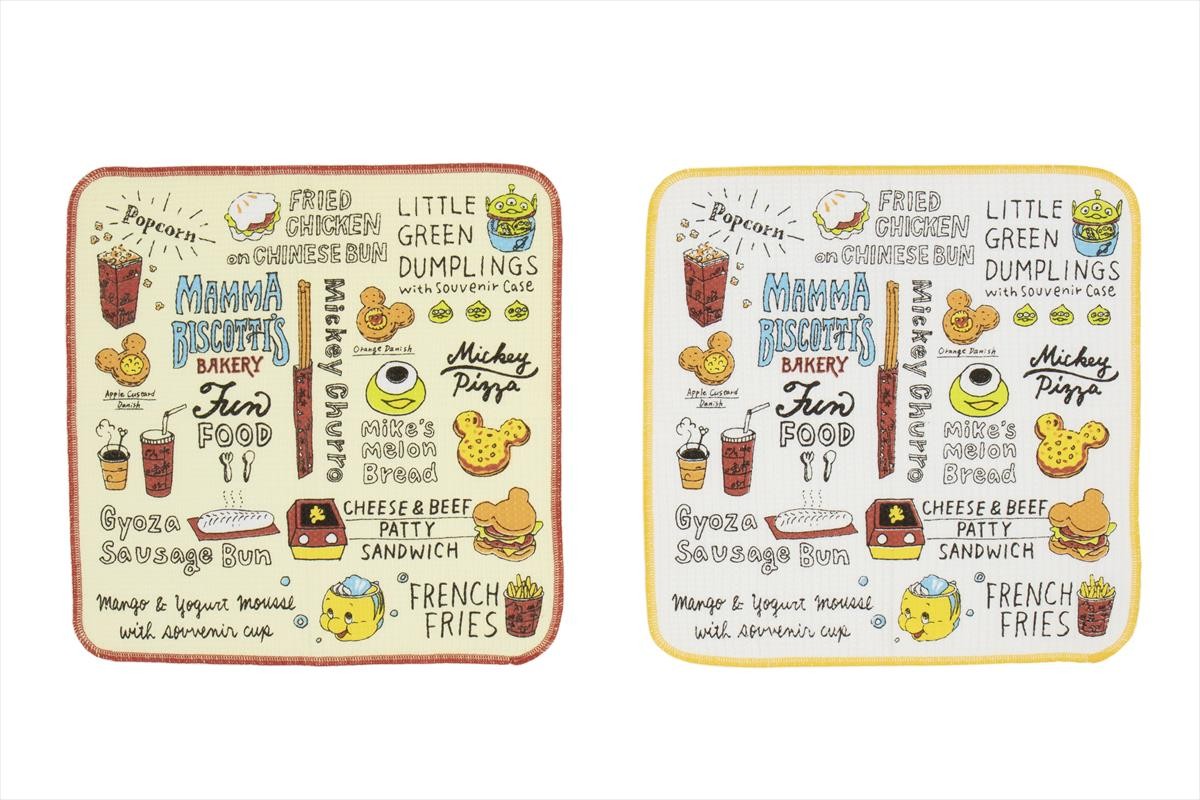 Popcorn
FRIED
CHICKEN
on CHINESE BUN
LITTLE
GREEN
DUMPLINGS
with Souvenir Case
MAMMA
BISCOTTI'S
BAKERY
Mickey Churro
Orange Danish
Apple Custard
Danish
Fun
FOOD
Mickey
Pizza
Mike's
Melon
Bread
Gyoza
Sausage Bun
CHEESE & BEEF
PATTY
SANDWICH
Mango & Yogurt Mousse
with souvenir cup
FRENCH
FRIES
Popcorn
FRIED
CHICKEN
on CHINESE BUN
LITTLE
GREEN
DUMPLINGS
with Souvenir Case
MAMMA
BISCOTTI'S
BAKERY
Mickey Churro
Orange Danish
Apple Custard
Danish
Fun
FOOD
Mickey
Pizza
Mike's
Melon
Bread
Gyoza
Sausage Bun
CHEESE & BEEF
PATTY
SANDWICH
Mango & Yogurt Mousse
with souvenir cup
FRENCH
FRIES